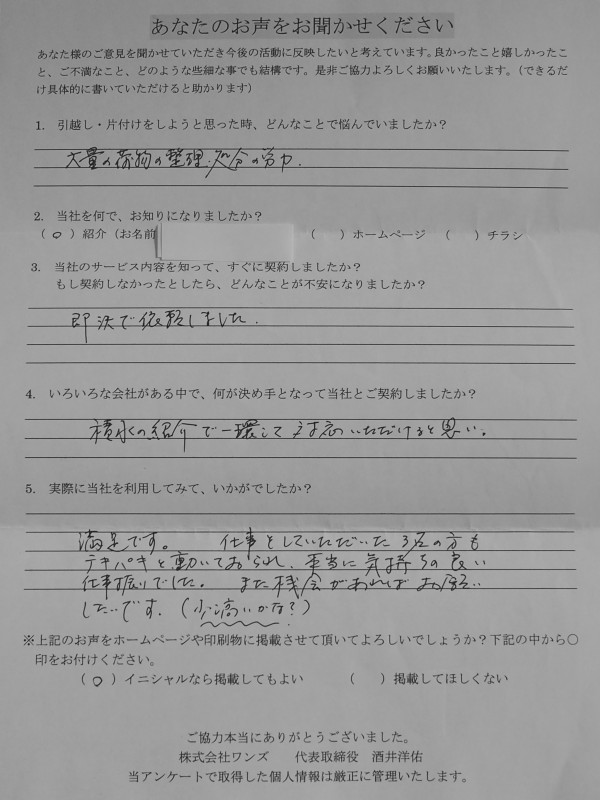 あなたのお声をお聞かせください
あなた様のご意見を聞かせていただき今後の活動に反映したいと考えています。良かったこと嬉しかったこ
と、ご不満なこと、どのような些細な事でも結構です。是非ご協力よろしくお願いいたします。（できるだ
け具体的に書いていただけると助かります）
1. 引越し・片付けをしようと思った時、どんなことで悩んでいましたか？
大量の荷物の整理、処分の労力.
2. 当社を何で、お知りになりましたか？
（ ○ ）紹介（お名前 （ ）ホームページ （ ）チラシ
3. 当社のサービス内容を知って、すぐに契約しましたか？
もし契約しなかったとしたら、どんなことが不安になりましたか？
即決で依頼しました.
4. いろいろな会社がある中で、何が決め手となって当社とご契約しましたか？
積水の紹介で一環して対応いただけると思い。
5. 実際に当社を利用してみて、いかがでしたか？
満足です。 仕事をしていただいた3名の方も
テキパキと動いておられ、本当に気持ちの良い
仕事振りでした。 また機会があればお願い
したいです.（少し高いかな？）
※上記のお声をホームページや印刷物に掲載させて頂いてよろしいでしょうか？下記の中から○
印をお付けください。
（ ○ ）イニシャルなら掲載してもよい （ ）掲載してほしくない
ご協力本当にありがとうございました。
株式会社ワンズ 代表取締役 酒井洋佑
当アンケートで取得した個人情報は厳正に管理いたします。